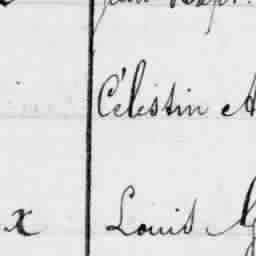 Célestin A
x Louis